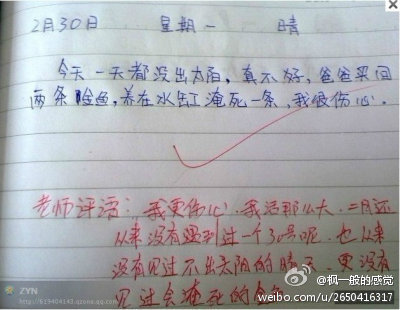 2月30日 星期一 晴
今天一天都没出太阳,真不好,爸爸买回
两条金鱼,养在水缸淹死一条,我很伤心.
老师评语:我更伤心.我活那么大.二月还
从来没有遇到过一个30号呢.也从来
没有见过不出太阳的晴天.更没有
见过会淹死的金
ZYN
http://619404143.qzone.qq.com
@枫一般的感觉
weibo.com/u/2650416317